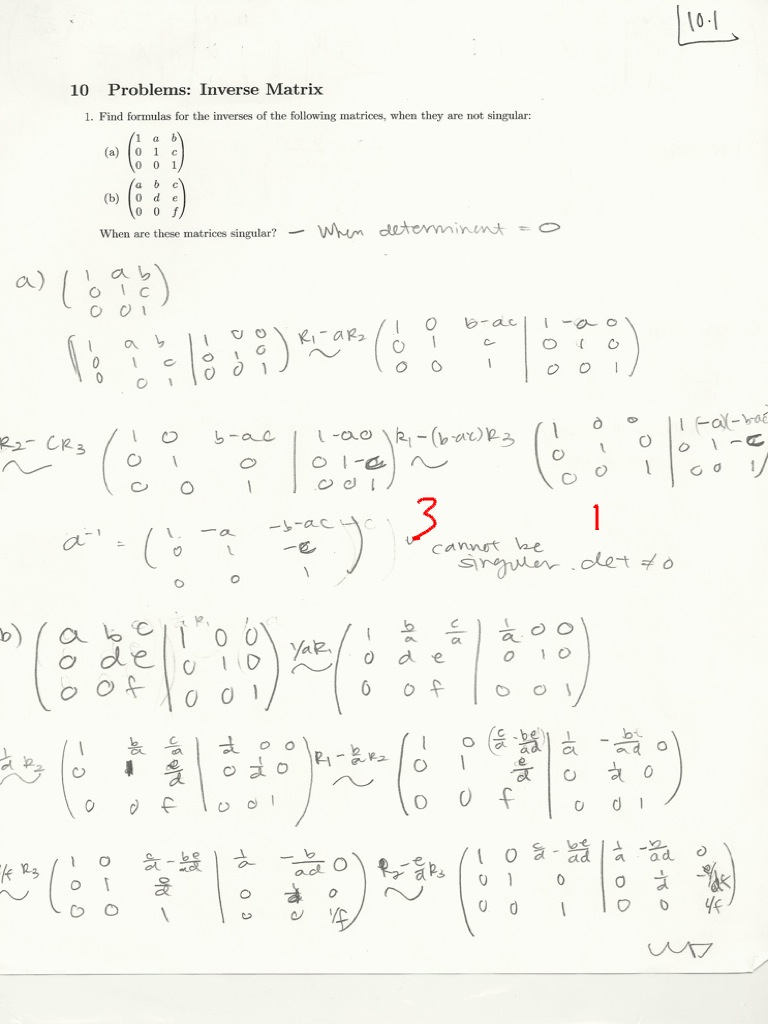 10.1
10 Problems: Inverse Matrix
1. Find formulas for the inverses of the following matrices, when they are not singular:
(a) (1 a b
0 1 c
0 0 1)
(b) (a b c
0 d e
0 0 f)
When are these matrices singular? — When determinent = 0
a) (1 a b
0 1 c
0 0 1)
(1 a b | 1 0 0
0 1 c | 0 1 0
0 0 1 | 0 0 1) R1-aR2 ~ (1 0 b-ac | 1 -a 0
0 1 c | 0 1 0
0 0 1 | 0 0 1)
R2-CR3 ~ (1 0 b-ac | 1 -a 0
0 1 0 | 0 1 -c
0 0 1 | 0 0 1) R1-(b-ac)R3 ~ (1 0 0 | 1 -a (-b-ac
0 1 0 | 0 1 -c
0 0 1 | 0 0 1
3 1
a⁻¹ = (1 -a -b-ac
0 1 -c
0 0 1) cannot be
singular. det ≠ 0
b) (a b c | 1 0 0
0 d e | 0 1 0
0 0 f | 0 0 1) 1/a R1 ~ (1 b/a c/a | 1/a 0 0
0 d e | 0 1 0
0 0 f | 0 0 1)
1/d R2 ~ (1 b/a c/a | 1/a 0 0
0 1 e/d | 0 1/d 0
0 0 f | 0 0 1) R1-b/a R2 ~ (1 0 (c/a - be/ad) | 1/a -b/ad 0
0 1 e/d | 0 1/d 0
0 0 f | 0 0 1)
1/f R3 ~ (1 0 c/a - be/ad | 1/a -b/ad 0
0 1 e/d | 0 1/d 0
0 0 1 | 0 0 1/f) R2-e/d R3 ~ (1 0 c/a - be/ad | 1/a -b/ad 0
0 1 0 | 0 1/d -e/df
0 0 1 | 0 0 1/f)